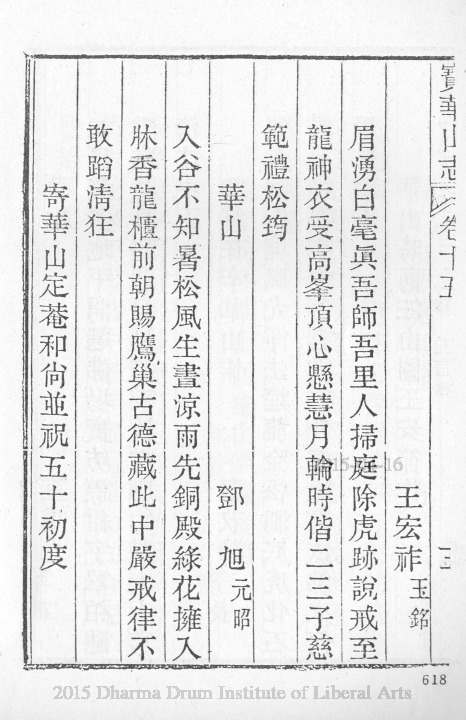 寶華山志 卷十五
王宏祚玉銘
眉湧白毫眞吾師吾里人掃庭除虎跡說戒至
龍神衣受高峯頂心懸慧月輪時偕二三子慈
範禮松筠
華山 鄧旭元昭
入谷不知暑松風生晝涼雨先銅殿綠花擁入
牀香龍櫃前朝賜鷹巢古德藏此中嚴戒律不
敢蹈淸狂
寄華山定菴和尙並祝五十初度
618
2015 Dharma Drum Institute of Liberal Arts